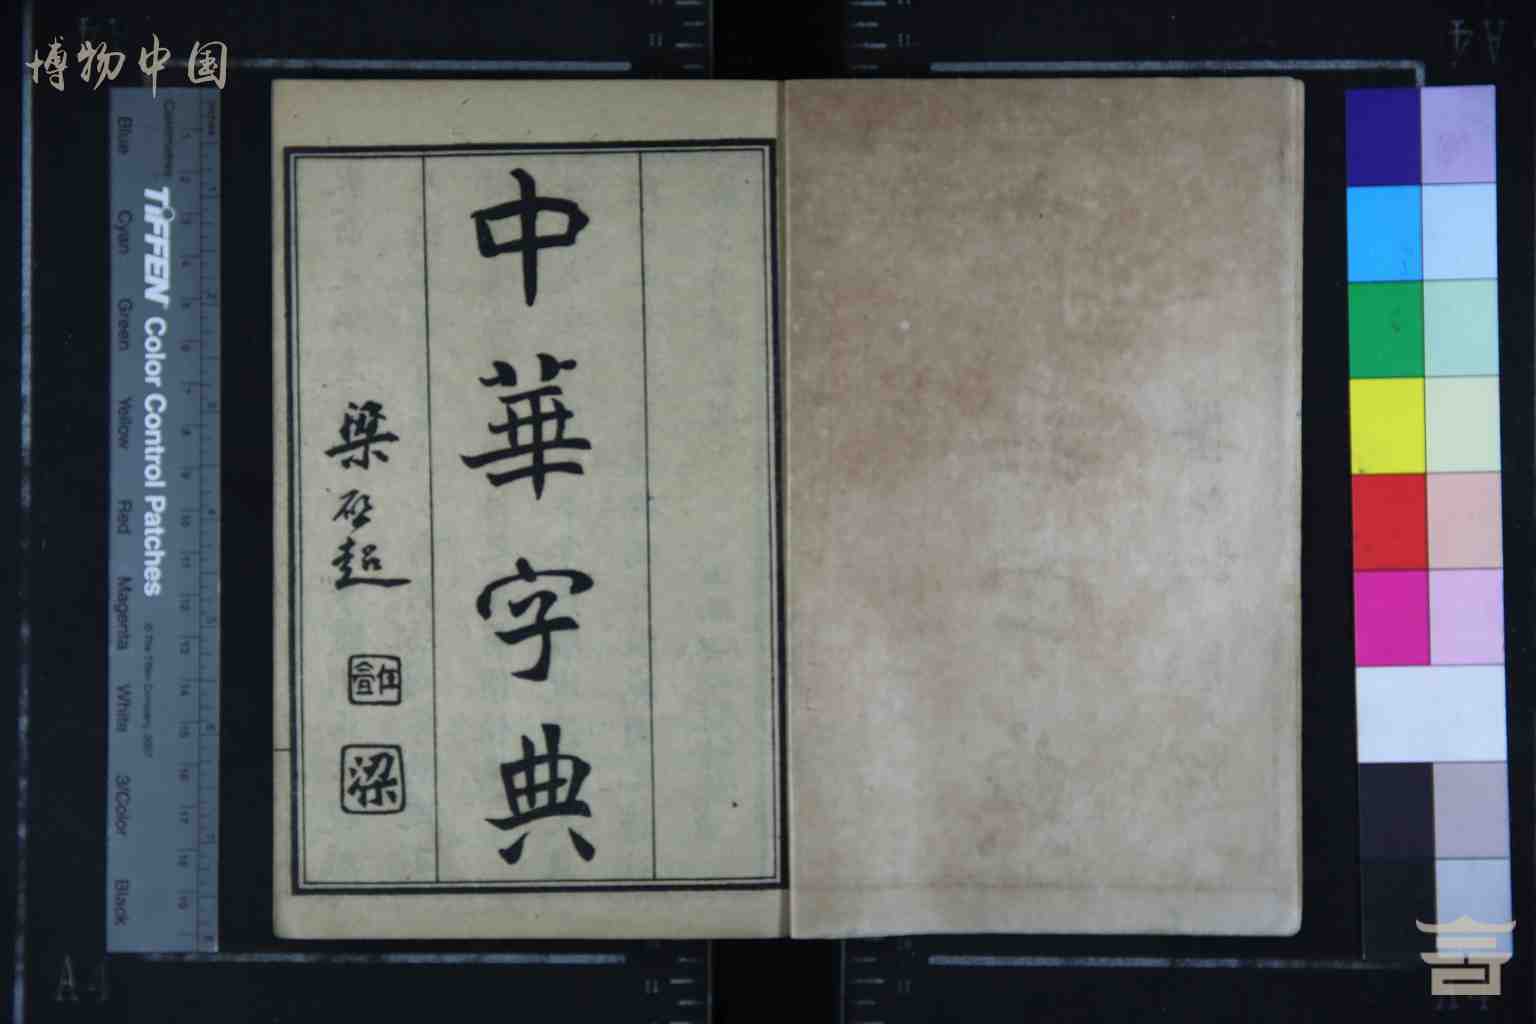 博物中国
中華字典
梁啟超
梁
A4
A4
inches
Centimetres
TIFFEN Color Control Patches
© The Tiffen Company, 2007
Blue Cyan Green Yellow Red Magenta White 3/Color Black